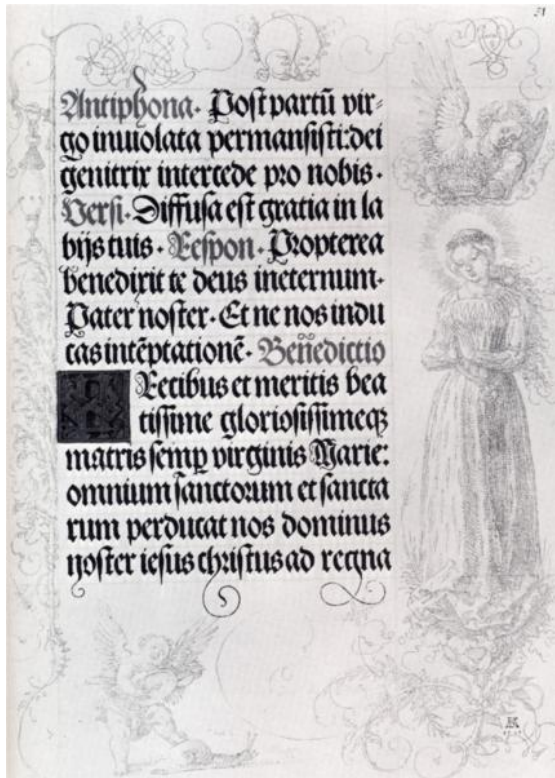 51
Antiphona. Post partū vir⸗
go inuiolata permansisti: dei
genitrix intercede pro nobis.
Versi. Diffusa est gratia in la
bijs tuis. Respon. Propterea
benedixit te deus ineternum.
Pater noster. Et ne nos indu
cas intēptationē. Benedictio
Precibus et meritis bea
tissime gloriosissimeqꝫ
matris semꝑ virginis Marie:
omnium sanctorum et sancta
rum perducat nos dominus
noster iesus christus ad regna